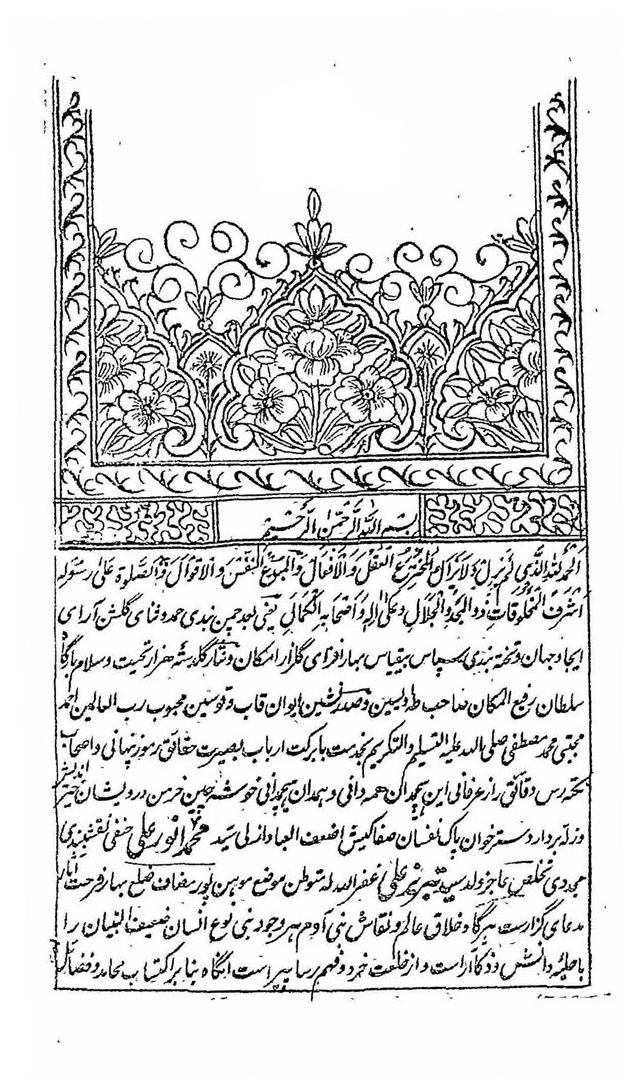 بسم الله الرحمن الرحيم
الحمد لله الذي لم يزل ولا يزال المخترع العقل والافعال والمبدع النفس والاقوال والصلوة على رسوله
اشرف المخلوقات ذو المجد والجلال وعلى اله واصحابه الكمال يعني بعد چمن بندی حمد و ثنای گلشن آرای
ایجاد جهان و تخته بندی سپاس بیقیاس بهار افزای گلزار امکان و نثار گلدسته هزار تحیت و سلام بارگاه
سلطان رفیع المکان صاحب طه و یسین و صدر نشین ایوان قاب و قوسین محبوب رب العالمین احمد
مجتبی محمد مصطفی صلی الله علیه التسلیم والتکریم بخدمت بابرکت ارباب بصیرت حقائق رموز نهانی و اصحاب
نکته رس دقائق راز عرفانی این همه دانی و همدان خوشه چین خرمن درویشان اندیش
و زله بردار دسترخوان پاک نفسان صفا کیش اضعف العباد ازلی سید محمد انور علی حنفی نقشبندی
مجددی تخلص عاجز ولد سید علی غفر الله له متوطن موضع پور مضاف ضلع بهار فرحت
مدعای گزارست هرگاه خلاق عالم و نقاش بنی آدم هر وجود بنی نوع انسان ضعیف البنیان را
با حلیه دانش و ذکا آراست و از خلعت خرد و فهم رسا پیراست انگاه بنا بر اکتساب محامد و فضائل